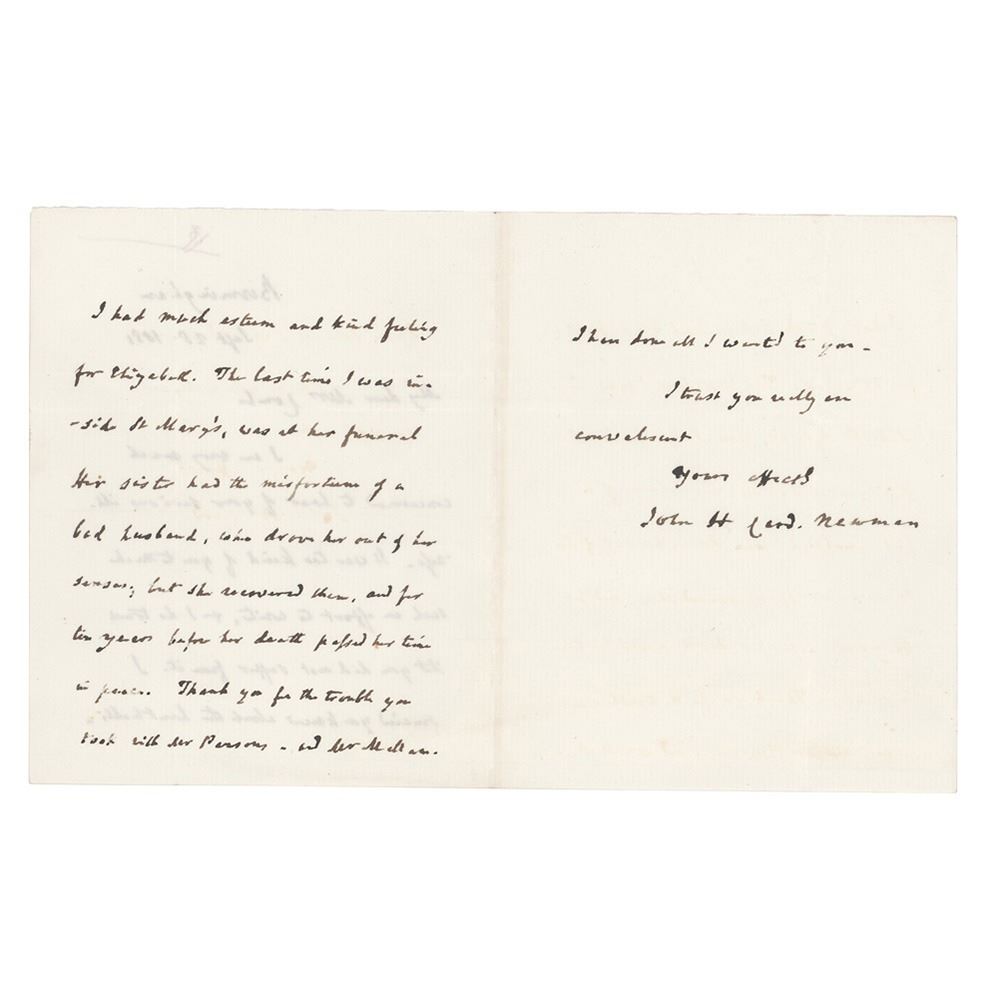 I had much esteem and kind feeling
for Elizabeth. The last time I was in-
-side St Mary's, was at her funeral
Her sister had the misfortune of a
bad husband, who drove her out of her
senses; but she recovered them, and for
ten years before her death passed her time
in peace. Thank you for the trouble you
took with Mr Parsons - and Mr
I have done all I wanted to you -
I trust you really are
convalescent
Yours affectly
John H Card. Newman